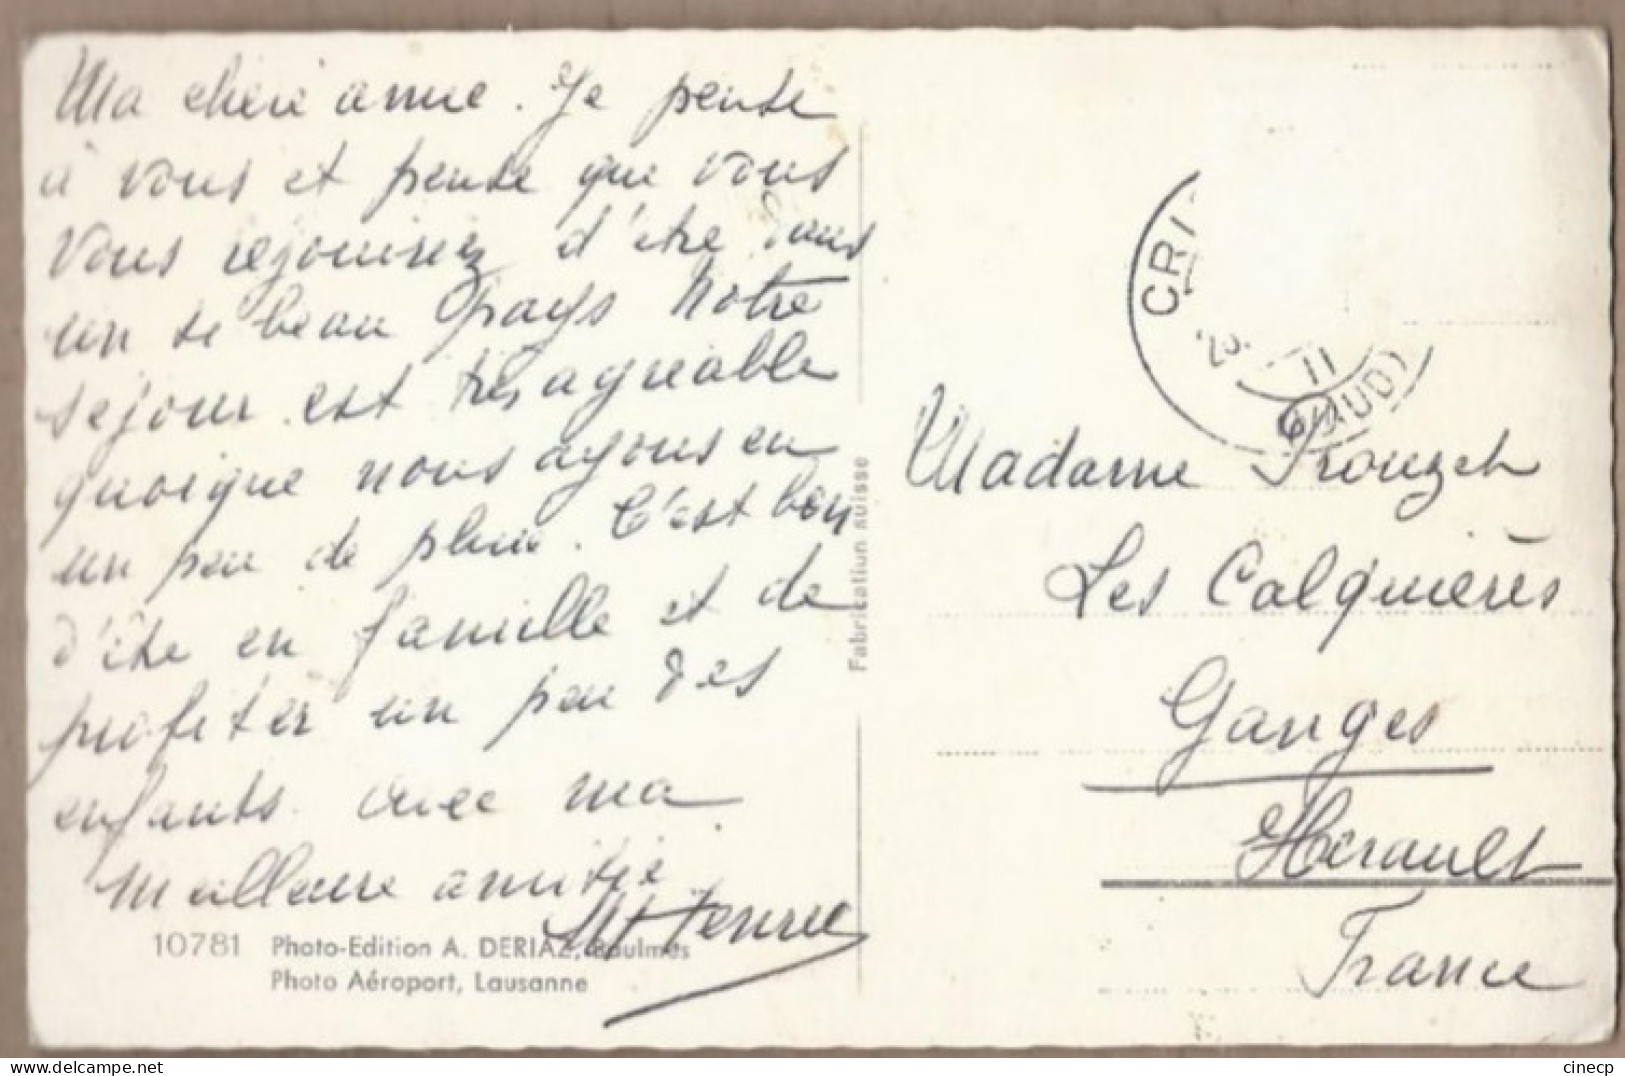 Ma cheri amie. Je pense
à vous et pense que vous
vous rejouirez d'être dans
un se beau pays Notre
sejour est très agreable
quoique nous ayons eu
un peu de pluie. C'est bon
d'être en famille et de
profiter un peu des
enfants. Avec ma
meilleure amitié
10781 Photo-Edition A. DERIAZ, Baulmes
Photo Aéroport, Lausanne
Fabrication suisse
CRI
11
VAUD)
Madame Trouzet
Les Calquières
Ganges
Hérault
France
cinecp